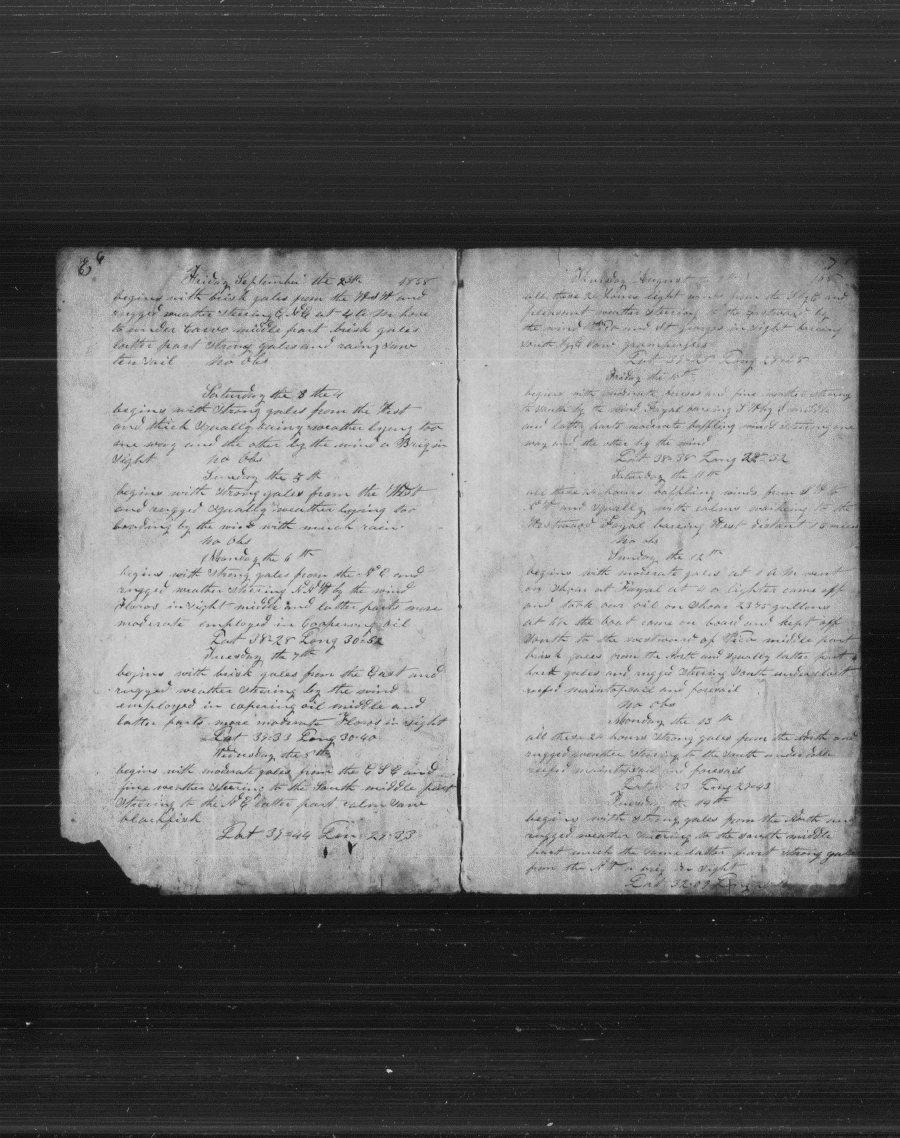 6
Friday September the 1858
begins with brisk gales from the WSW and
rugged weather steering NE at 4 AM hove
to under middle part brisk gales
latter part strong gales and rainy saw
ten sail No Obs
Saturday the
begins with strong gales from the West
and thick squally rainy weather lying too
one way and the other by the wind a Brig in
sight No Obs
Sunday the 5th
begins with strong gales from the West
and rugged squally weather lying too
heading by the wind with much rain
No Obs
Monday the 6th
begins with strong gales from the NE and
rugged weather steering by the wind
Floros in sight middle and latter parts more
moderate employed in Coopering oil
Lat 38=28 Long 30=52
Tuesday the 7th
begins with brisk gales from the East and
rugged weather steering by the wind
employed in coopering oil middle and
latter parts more moderate Floros in sight
Lat 39=33 Long 30=40
Wednesday the 8th
begins with moderate gales from the ESE and
fine weather steering to the South middle part
steering to the NE latter part calm saw
blackfish
Lat 39=44 Long 29=33
7
Thursday August
all these 24 hours light winds from the and
pleasant weather steering to the Eastward by
the wind and St Georges in sight bearing
South saw grampuses
Lat Long
Friday the
begins with moderate breeses and fine weather steering
to South by the wind Fayal bearing middle
and latter parts moderate baffling winds steering one
way and the other by the wind
Lat 38=38 Long 32
Saturday the 11th
all these 24 hours baffling winds from
and squally with calms working to the
Westward Fayal bearing West distant 15 miles
No obs
Sunday the 12th
begins with moderate gales at 1 AM went
on shoar at Fayal at a lighter came off
and took our oil on shoar 2375 gallons
at the boat came on board and kept off
South to the westward of middle part
brisk gales from the North and squally latter part
brisk gales and rugged steering South under short
reefed maintopsail and foresail
No Obs
Monday the 13th
all these 24 hours strong gales from the North and
rugged weather steering to the South under
reefed maintopsail and foresail
Lat Long 29=43
Tuesday the 14th
begins with strong gales from the North and
rugged weather steering to the South middle
part much the same latter part strong gales
from the a brig in sight
Lat 32=09 Long